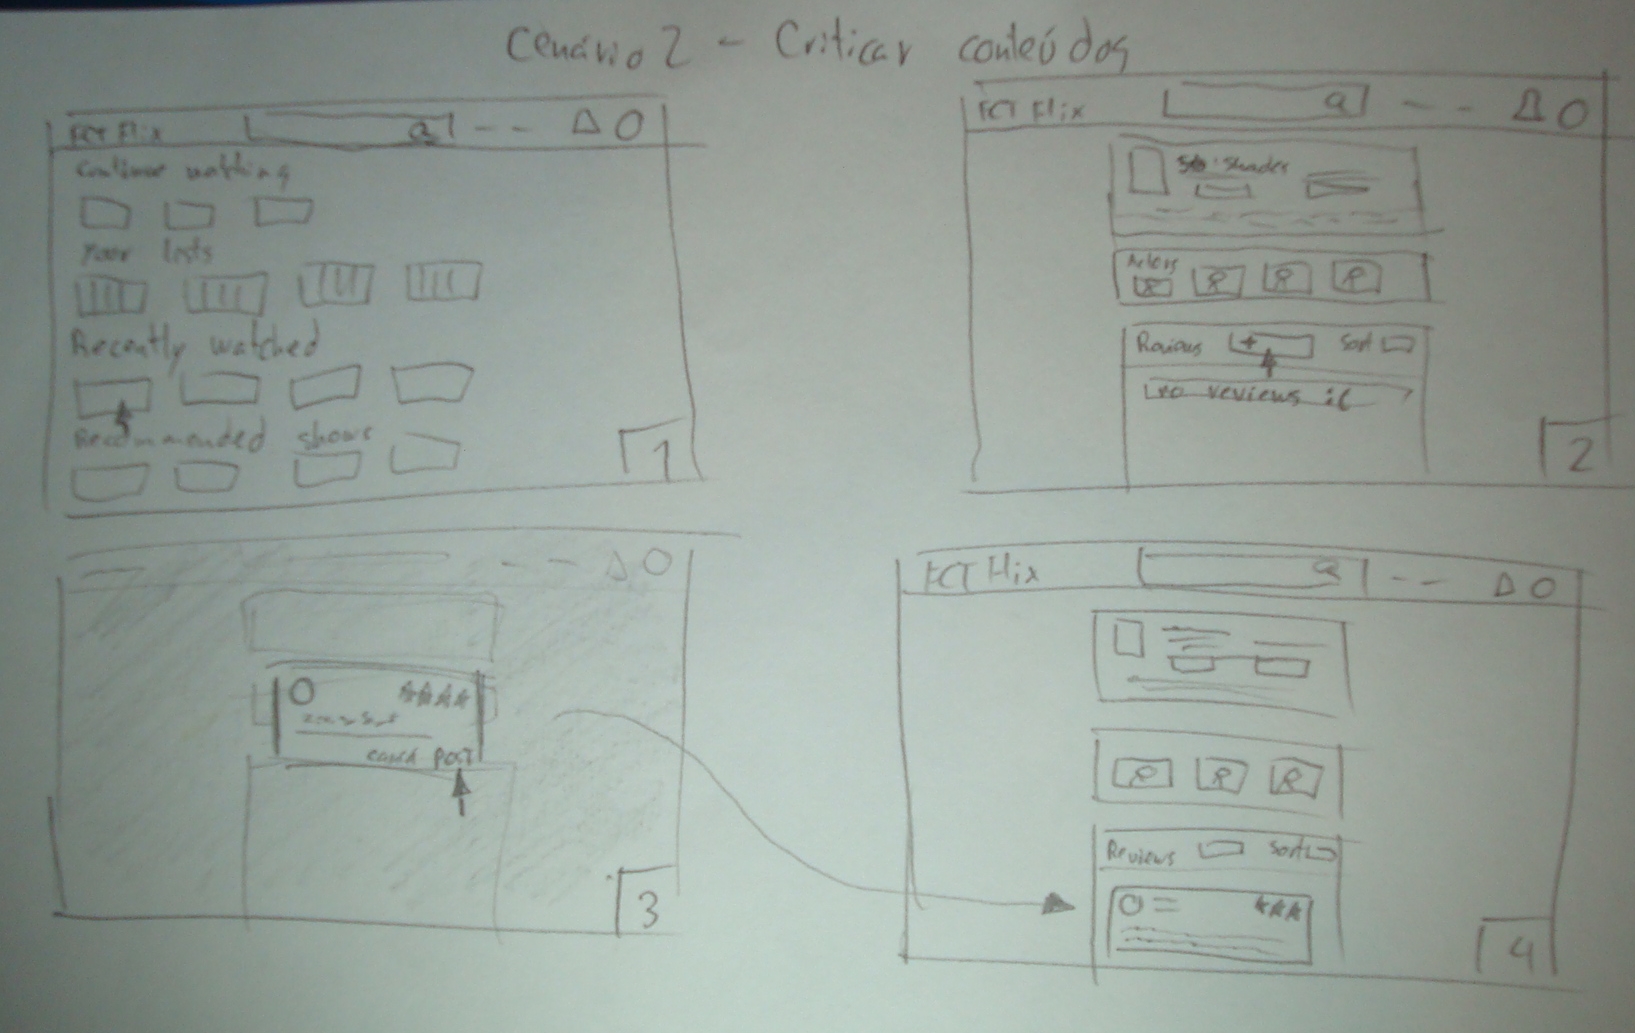 Cenário 2 - Criticar conteúdos
FCT Flix
Continue watching
Your lists
Recently watched
Recommended shows
1
FCT Flix
Shades
Actors
Reviews + Sort
no reviews :(
2
Post
3
FCT Flix
Reviews Sort
4